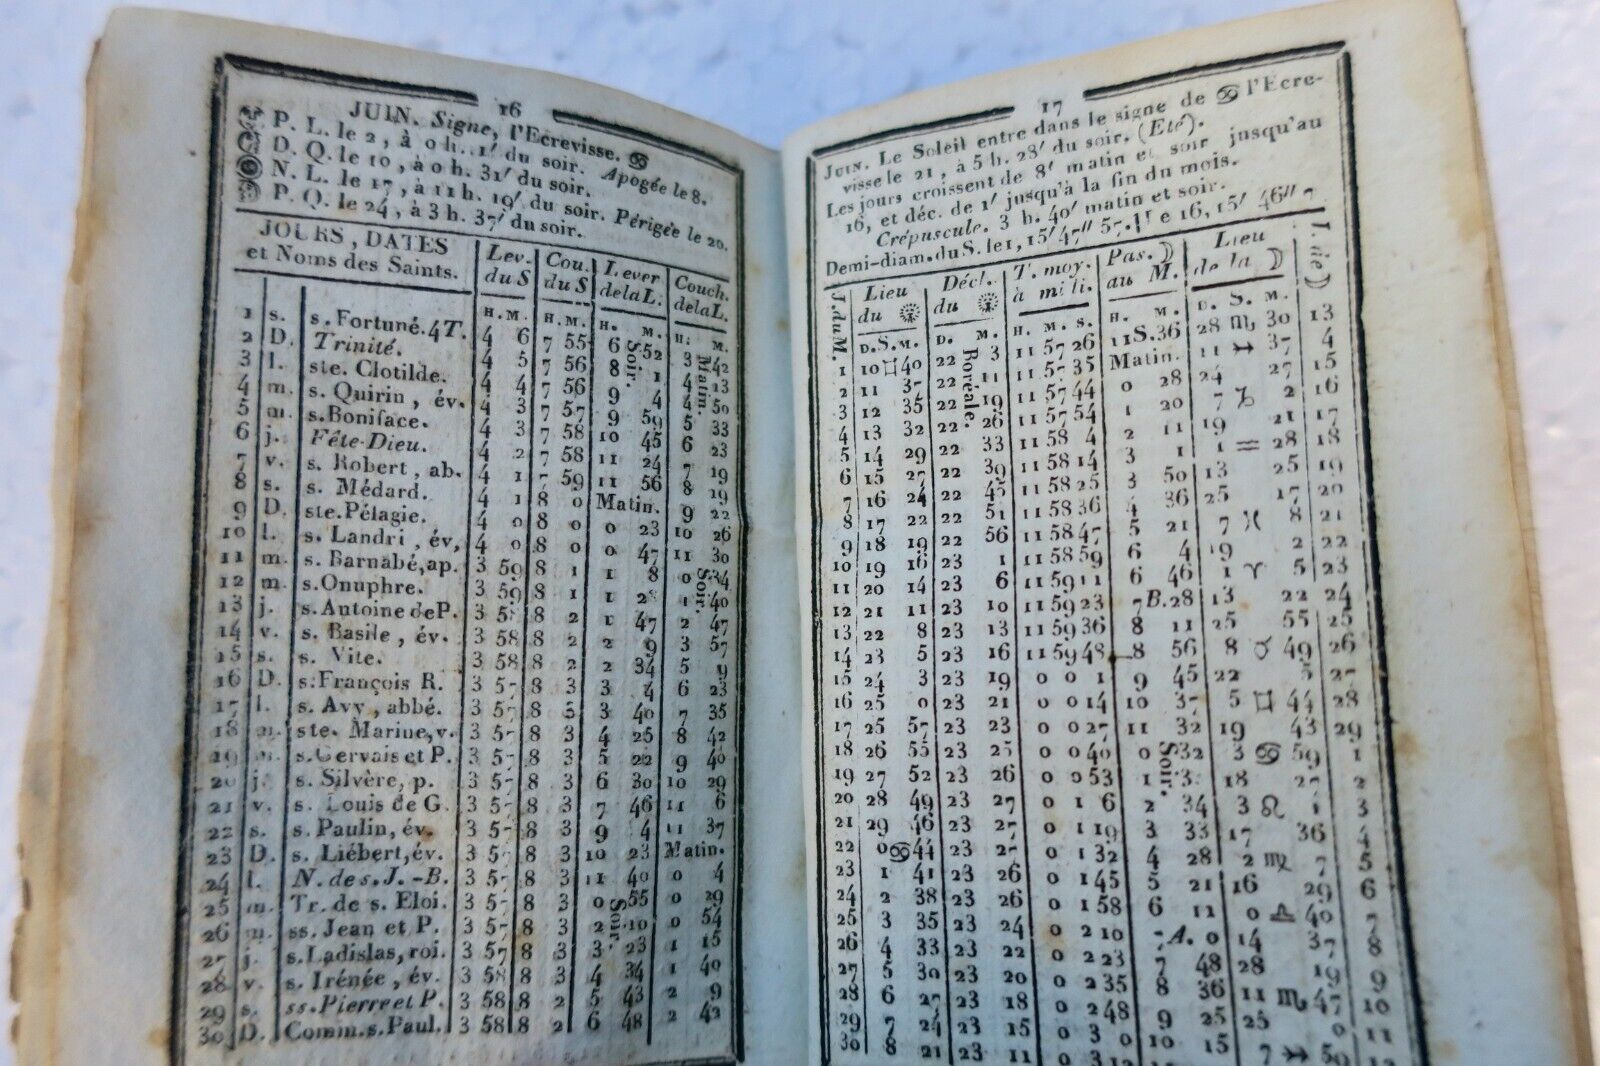 16
JUIN. Signe, l'Ecrevisse. ♋
P. L. le 2, à 0 h. 1' du soir. Apogée le 8.
D. Q. le 10, à 0 h. 31' du soir.
N. L. le 17, à 11 h. 19' du soir. Périgée le 20.
P. Q. le 24, à 3 h. 37' du soir.
JOURS, DATES et Noms des Saints. Lev. du S Cou. du S Lever de la L. Couch. de la L.
H. M. H. M. H. M. H. M.
Soir. Matin.
1 s. s. Fortuné. 4T. 4 6 7 55 6 52 3 42
2 D. Trinité. 4 5 7 56 8 1 4 13
3 l. ste. Clotilde. 4 4 7 56 9 4 4 50
4 m. s. Quirin, év. 4 3 7 57 9 59 5 33
5 m. s. Boniface. 4 3 7 58 10 45 6 23
6 j. Fête-Dieu. 4 2 7 58 11 24 7 19
7 v. s. Robert, ab. 4 1 7 59 11 56 8 19
8 s. s. Médard. 4 1 8 0 Matin. 9 22
9 D. ste. Pélagie. 4 0 8 0 0 23 10 26
10 l. s. Landri, év, 4 0 8 0 0 47 11 30
11 m. s. Barnabé, ap. 3 59 8 1 1 8 0 34 Soir.
12 m. s. Onuphre. 3 59 8 1 1 28 1 40
13 j. s. Antoine de P. 3 58 8 2 1 47 2 47
14 v. s. Basile, év. 3 58 8 2 2 9 3 57
15 s. s. Vite. 3 58 8 2 2 34 5 9
16 D. s. François R. 3 57 8 3 3 4 6 23
17 l. s. Avy, abbé. 3 57 8 3 3 40 7 35
18 m. ste. Marine, v. 3 57 8 3 4 25 8 42
19 m. s. Gervais et P. 3 57 8 3 5 22 9 40
20 j. s. Silvère, p. 3 57 8 3 6 30 10 29
21 v. s. Louis de G. 3 57 8 3 7 46 11 6
22 s. s. Paulin, év. 3 57 8 3 9 4 11 37
23 D. s. Liébert, év. 3 57 8 3 10 23 Matin.
24 l. N. de s. J.-B. 3 57 8 3 11 40 0 4
25 m. Tr. de s. Eloi 3 57 8 3 0 55 0 29 Soir.
26 m. ss. Jean et P. 3 57 8 3 2 10 0 54
27 j. s. Ladislas, roi. 3 57 8 3 3 23 1 15
28 v. s. Irénée, év. 3 58 8 3 4 34 1 40
29 s. ss. Pierre et P. 3 58 8 2 5 43 2 9
30 D. Comm. s. Paul. 3 58 8 2 6 48 2 42
17
JUIN. Le Soleil entre dans le signe de ♋ l'Ecre-
visse le 21, à 5 h. 28' du soir. (Eté).
Les jours croissent de 8' matin et soir jusqu'au
16, et déc. de 1' jusqu'à la fin du mois.
Crépuscule. 3 h. 40' matin et soir.
Demi-diam. du S. le 1, 15' 47" 57. le 16, 15' 46"
J. du M. Lieu du ☉ Décl. du ☉ T. moy. à midi. Pas. ☽ au M. Lieu de la ☽
D. S. M. D. M. H. M. S. H. M. D. S. M.
Boréale.
1 10 ♊ 40 22 3 11 57 26 11S.36 28 ♏ 30 13
2 11 37 22 11 11 57 35 Matin. 11 ♐ 37 4
3 12 35 22 19 11 57 44 0 28 24 27 15
4 13 32 22 26 11 57 54 1 20 7 ♑ 2 16
5 14 29 22 33 11 58 4 2 11 19 21 17
6 15 27 22 39 11 58 14 3 1 1 ♒ 28 18
7 16 24 22 45 11 58 25 3 50 13 25 19
8 17 22 22 51 11 58 36 4 36 25 17 20
9 18 19 22 56 11 58 47 5 21 7 ♓ 8 21
10 19 16 23 1 11 58 59 6 4 19 2 22
11 20 14 23 6 11 59 11 6 46 1 ♈ 5 23
12 21 11 23 10 11 59 23 7B.28 13 22 24
13 22 8 23 13 11 59 36 8 11 25 55 25
14 23 5 23 16 11 59 48 8 56 8 ♉ 49 26
15 24 3 23 19 0 0 1 9 45 22 5 27
16 25 0 23 21 0 0 14 10 37 5 ♊ 44 28
17 25 57 23 23 0 0 27 11 32 19 43 29
18 26 55 23 25 0 0 40 0 32 3 ♋ 59 1 Soir.
19 27 52 23 26 0 0 53 1 3 18 27 2
20 28 49 23 27 0 1 6 2 34 3 ♌ 1 3
21 29 46 23 27 0 1 19 3 33 17 36 4
22 0 ♋ 44 23 27 0 1 32 4 28 2 ♍ 7 5
23 1 41 23 26 0 1 45 5 21 16 29 6
24 2 38 23 26 0 1 58 6 11 0 ♎ 40 7
25 3 35 23 24 0 2 10 7A. 0 14 37 8
26 4 33 23 22 0 2 23 7 48 28 19 9
27 5 30 23 20 0 2 35 8 36 11 ♏ 47 10
28 6 27 23 18 0 2 48 9 25 25 0 11
29 7 24 23 15 0 3 0 10 15 7 ♐ 12
30 8 21 23 11 0 3 12